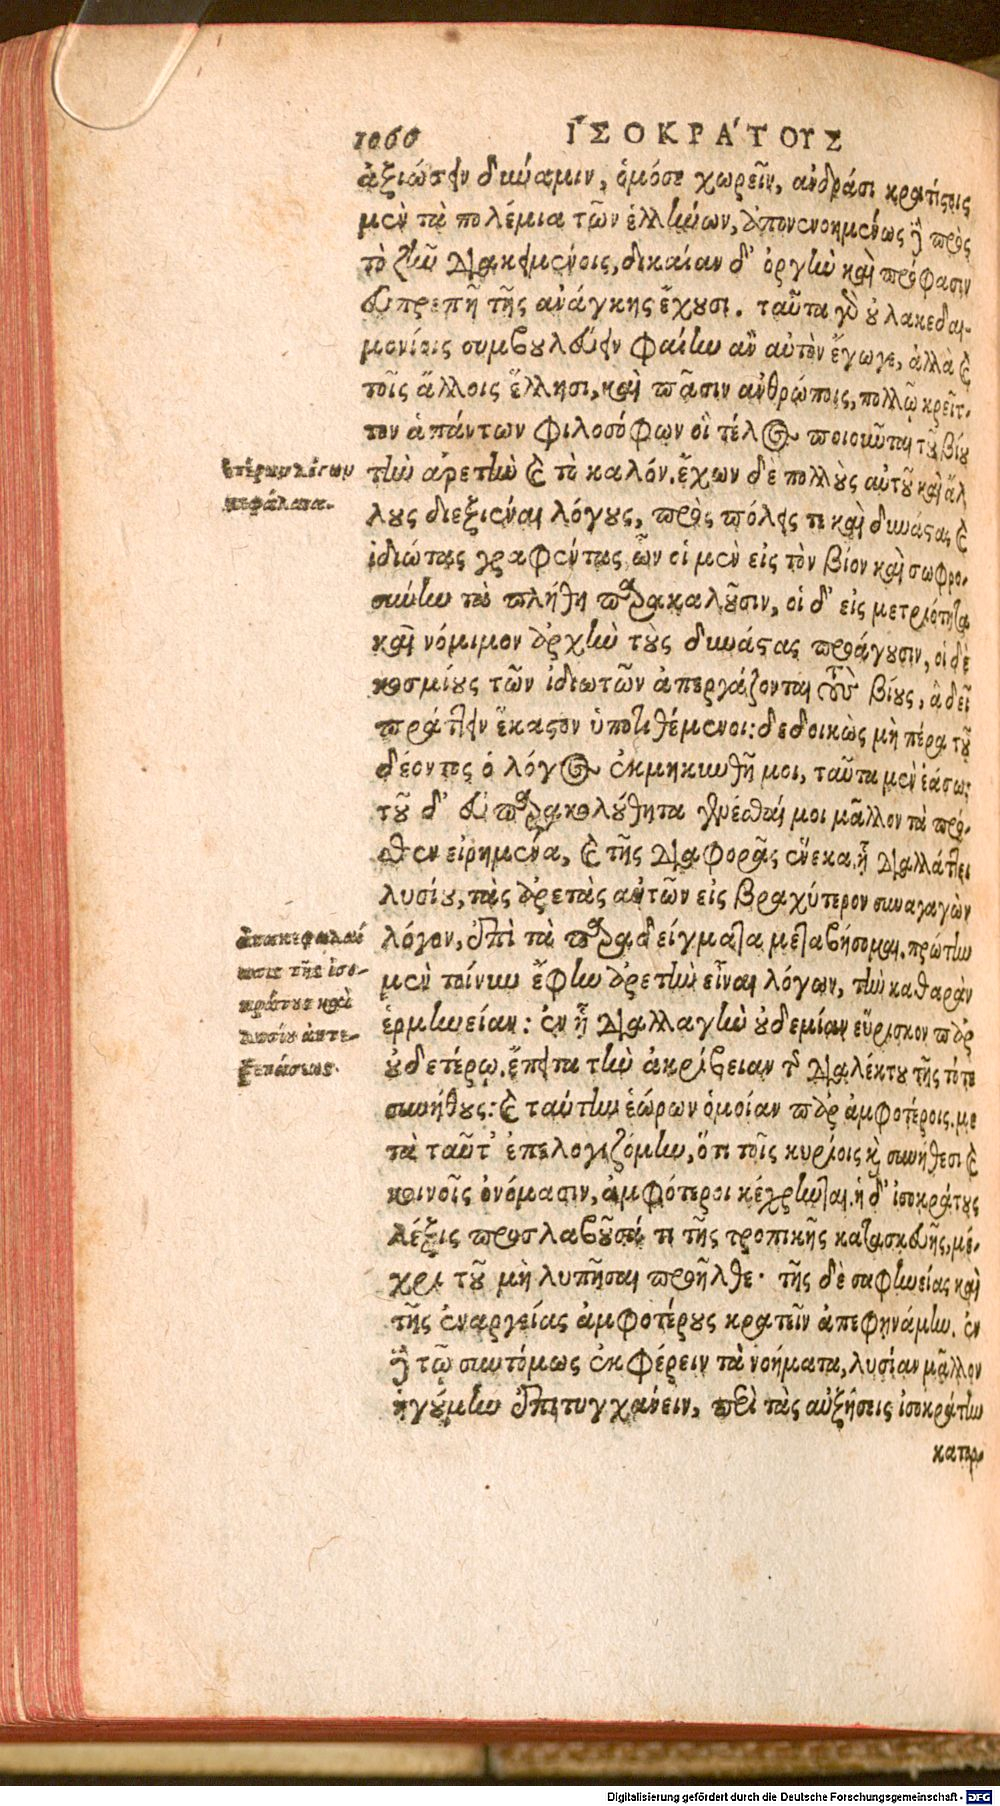 1060 ἸΣΟΚΡΆΤΟΥΣ
ἀξιώσειν δύναμιν, ὁμόσε χωρεῖν, ἀνδράσι κρατίστοις
μὲν τὰ πολέμια τῶν ἑλλήνων, ἀπονενοημένως δὲ πρὸς
τὸ ζῆν διακειμένοις, δικαίαν δ' ὀργὴν καὶ πρόφασιν
εὐπρεπῆ τῆς ἀνάγκης ἔχουσι. ταῦτα γὰρ οὐ λακεδαι-
μονίοις συμβουλεύειν φαίην ἂν αὐτὸν ἔγωγε, ἀλλὰ καὶ
τοῖς ἄλλοις ἕλλησι, καὶ πᾶσιν ἀνθρώποις, πολλῷ κρεῖτ-
τον ἁπάντων φιλοσόφων οἳ τέλος ποιοῦνται τοῦ βίου
ἑτέρων λόγων τὴν ἀρετὴν καὶ τὸ καλόν. ἔχων δὲ πολλοὺς αὐτοῦ καὶ ἄλ
κεφάλαια. λους διεξιέναι λόγους, πρὸς πόλεις τε καὶ δυνάστας καὶ
ἰδιώτας γραφέντας, ὧν οἱ μὲν εἰς τὸν βίον καὶ σωφρο-
σύνην τὰ πλήθη παρακαλοῦσιν, οἱ δ' εἰς μετριότητα
καὶ νόμιμον ἀρχὴν τοὺς δυνάστας προάγουσιν, οἱ δὲ
κοσμίους τῶν ἰδιωτῶν ἀπεργάζονται τοὺς βίους, ἃ δεῖ
πράττειν ἕκαστον ὑποτιθέμενοι: δεδοικὼς μὴ πέρα τοῦ
δέοντος ὁ λόγος ἐκμηκυνθῇ μοι, ταῦτα μὲν ἐάσω:
τοῦ δ' εὐπαρακολούθητα γενέσθαι μοι μᾶλλον τὰ πρό-
σθεν εἰρημένα, καὶ τῆς διαφορᾶς ἕνεκα, ᾗ διαλλάττει
λυσίου, τὰς ἀρετὰς αὐτῶν εἰς βραχύτερον συναγαγὼν
ἀνακεφαλαί λόγον, ἐπὶ τὰ παραδείγματα μεταβήσομαι. πρώτην
ωσις τῆς ἰσο- μὲν τοίνυν ἔφην ἀρετὴν εἶναι λόγων, τὴν καθαρὰν
κράτους καὶ ἑρμηνείαν: ἐν ᾗ διαλλαγὴν οὐδεμίαν εὕρισκον παρ'
λυσίου ἀντε- οὐδετέρῳ. ἔπειτα τὴν ἀκρίβειαν τῆς διαλέκτου τῆς τότε
ξετάσεως. συνήθους: καὶ ταύτην ἑώρων ὁμοίαν παρ' ἀμφοτέροις. με
τὰ ταῦτ' ἐπελογιζόμην, ὅτι τοῖς κυρίοις καὶ συνήθεσι καὶ
κοινοῖς ὀνόμασιν, ἀμφότεροι κέχρηνται. ἡ δ' ἰσοκράτους
λέξις προσλαβοῦσά τι τῆς τροπικῆς κατασκευῆς, μέ-
χρι τοῦ μὴ λυπῆσαι προῆλθε. τῆς δὲ σαφηνείας καὶ
τῆς ἐναργείας ἀμφοτέρους κρατεῖν ἀπεφηνάμην. ἐν
δὲ τῷ συντόμως ἐκφέρειν τὰ νοήματα, λυσίαν μᾶλλον
ἡγούμην ἐπιτυγχάνειν, περὶ τὰς αὐξήσεις ἰσοκράτην
κατορ-
Digitalisierung gefördert durch die Deutsche Forschungsgemeinschaft - DFG